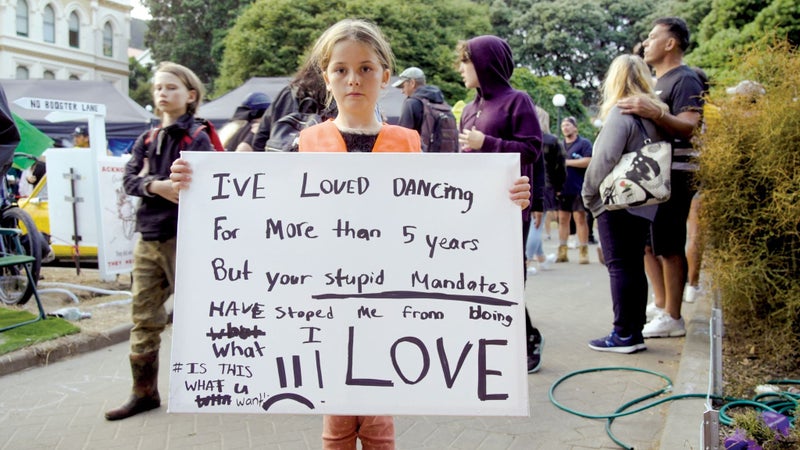 NO BOOSTER LANE
I'VE LOVED DANCING
For More than 5 years
But your stupid Mandates
HAVE Stoped Me from doing
What I LOVE
#IS THIS
WHAT u
want!!